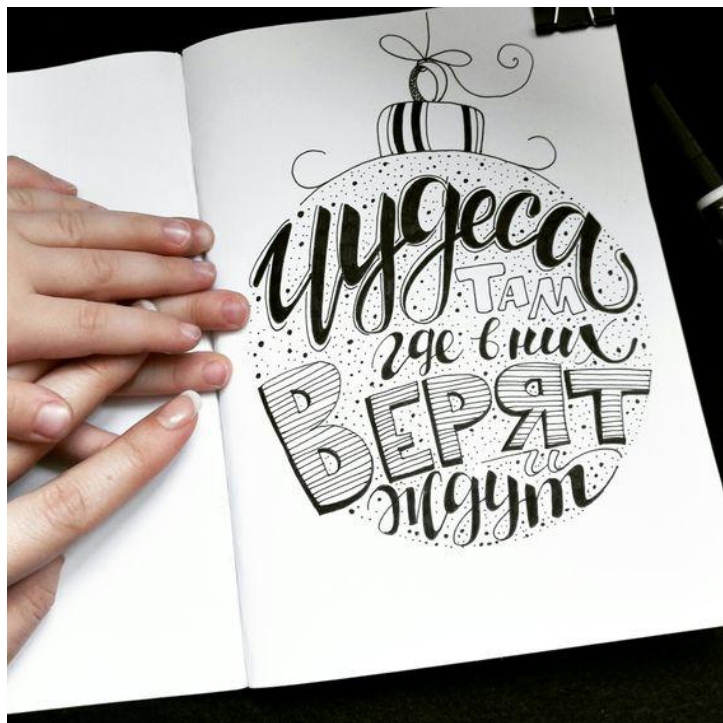 Чудеса
ТАМ
где в них
ВЕРЯТ
и
ждут